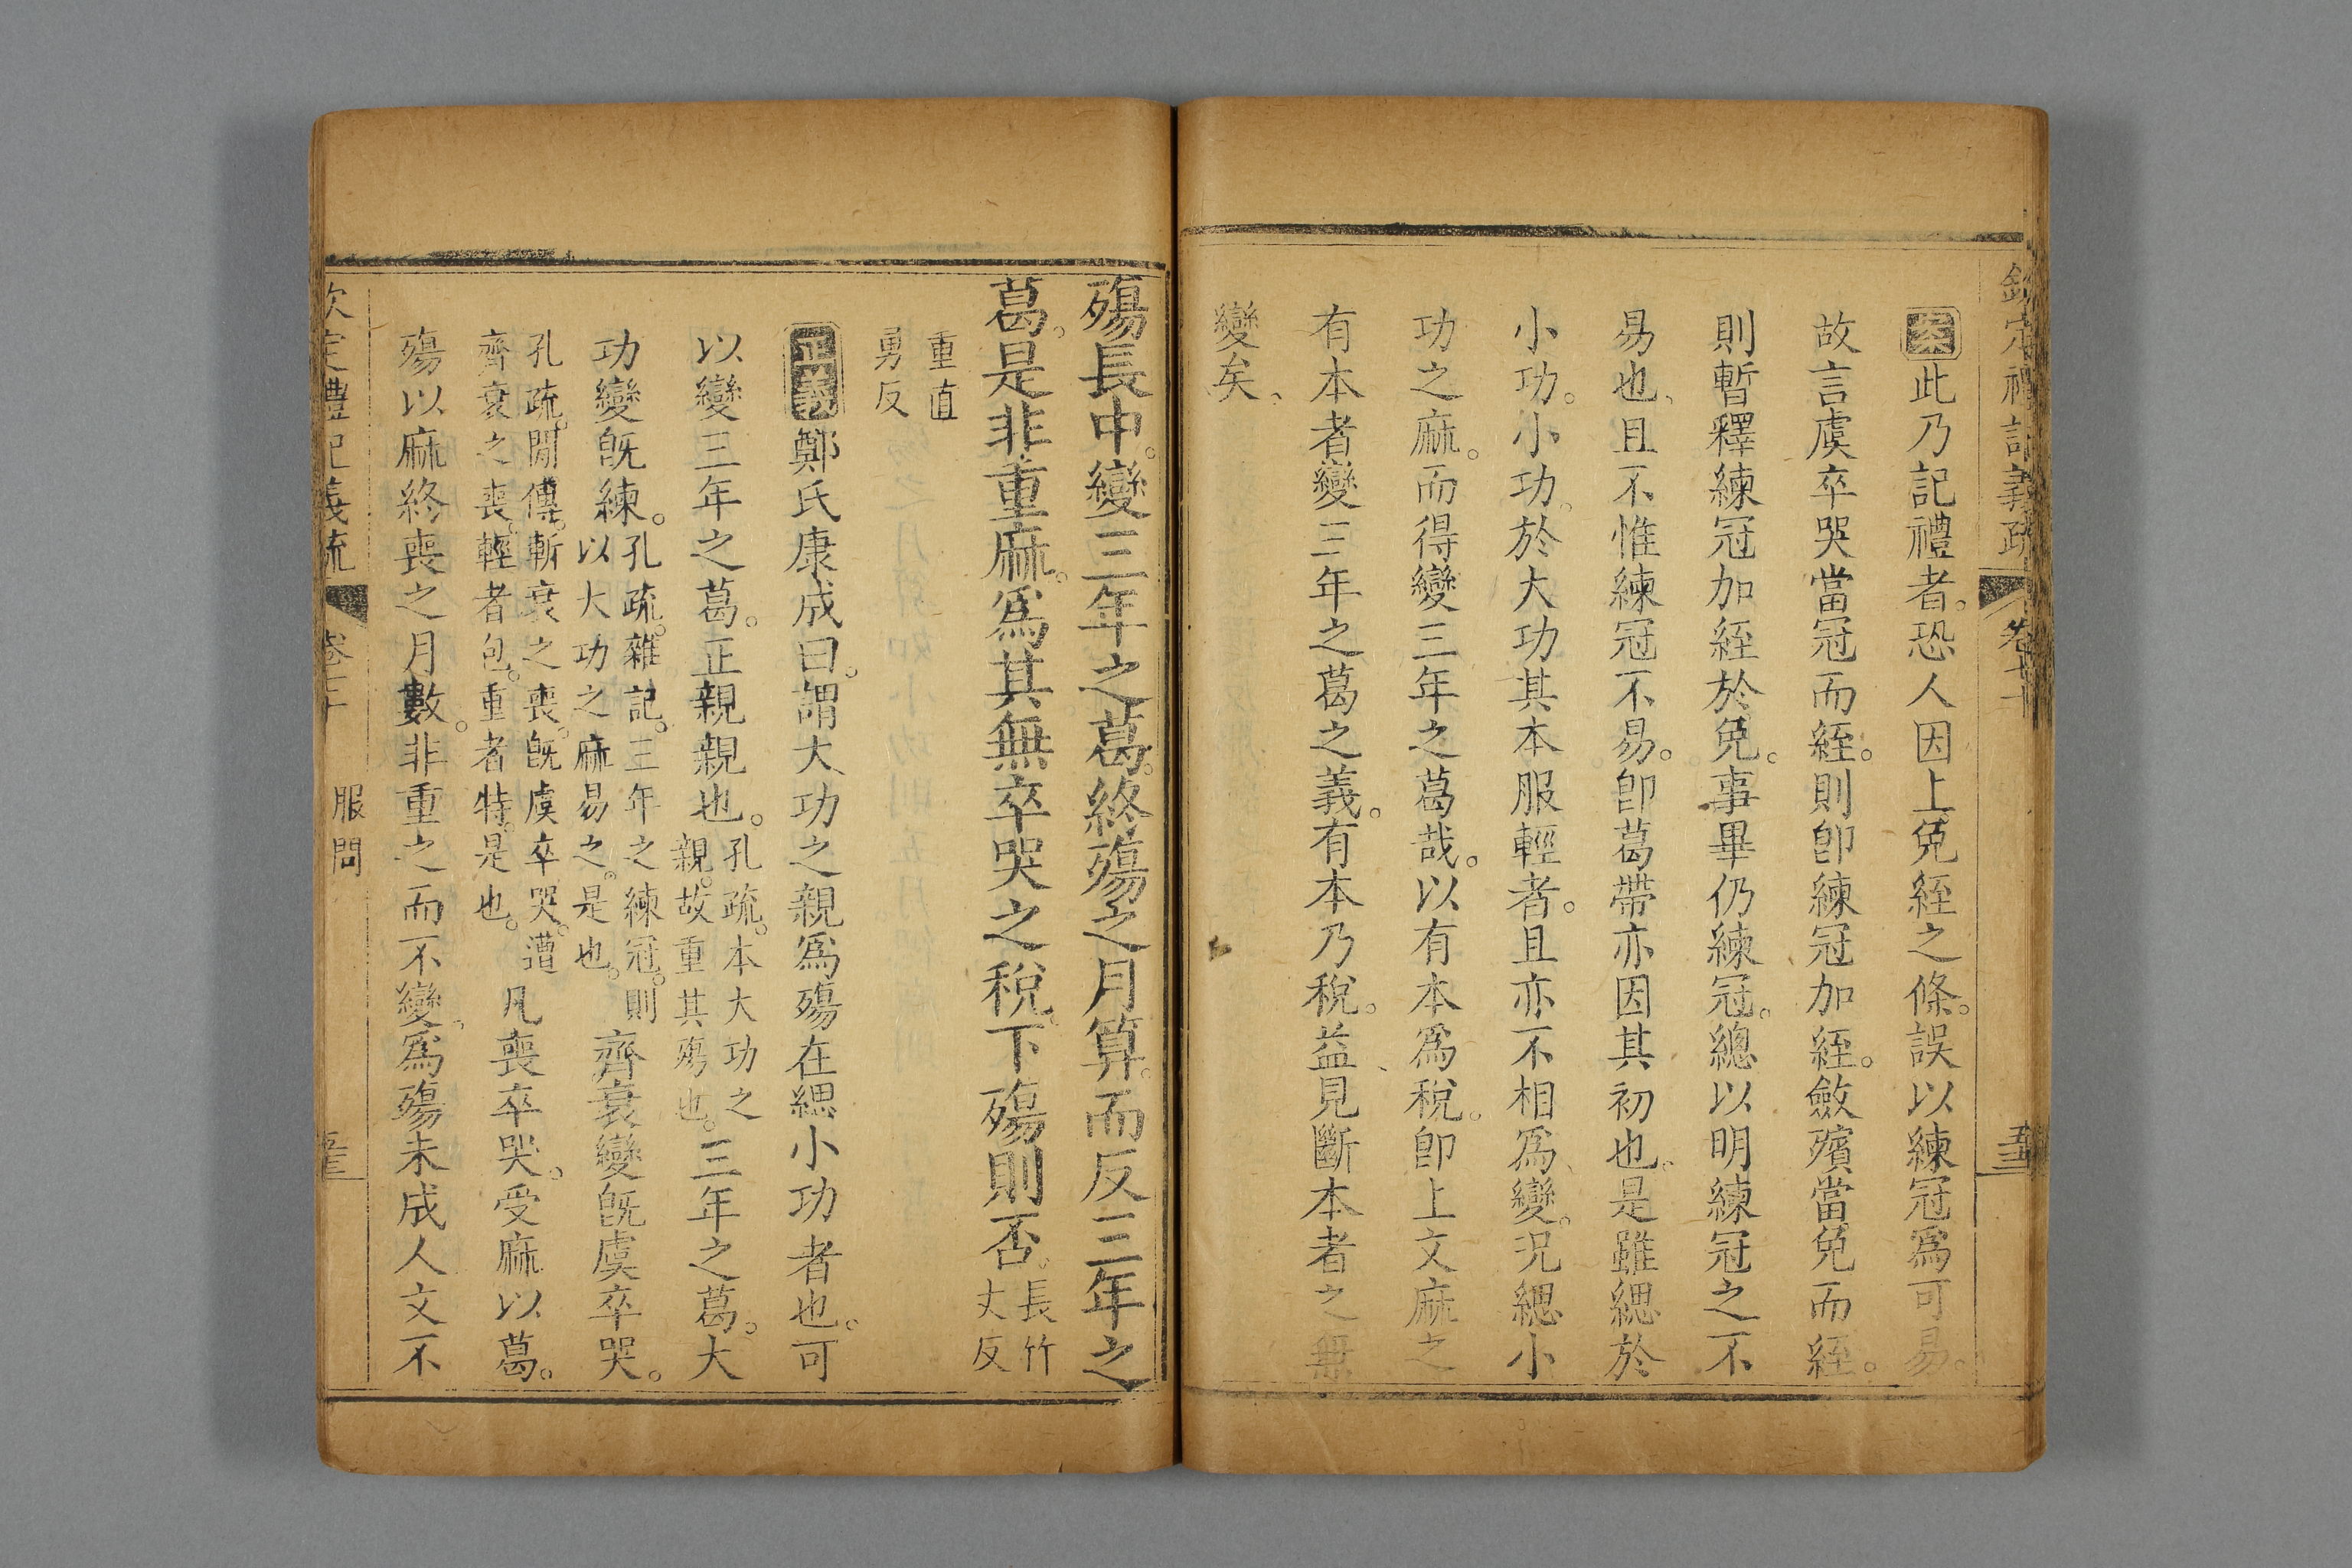 欽定禮記義疏 卷七十
案此乃記禮者。恐人因上免絰之條。誤以練冠爲可易。
故言虞卒哭當冠而絰。則卽練冠加絰。斂殯當免而絰。
則暫釋練冠加絰於免。事畢仍練冠。總以明練冠之不
易也、且不惟練冠不易。卽葛帶亦因其初也。是雖緦於
小功。小功。於大功其本服輕者。且亦不相爲、變。況緦小
功之麻。而得變三年之葛哉。以有本爲稅。卽上文麻之
有本者變三年之葛之義。有本乃稅。益、見斷本者之無
變矣、
殤長中。變三年之葛。終殤之月算。而反三年之
葛。是非重麻。爲其無卒哭之稅。下殤則否。長竹丈反
重直勇反
正義鄭氏康成曰。謂大功之親爲殤在緦小功者也。可
以變三年之葛。正親親也。孔疏。本大功之親。故重其殤也。三年之葛。大
功變旣練。孔疏。雜記。三年之練冠。則以大功之麻易之。是也。齊衰變旣虞卒哭。
孔疏。閒傳。斬衰之喪。旣虞卒哭。遭齊衰之喪。輕者包。重者特。是也。凡喪卒哭。受麻以葛。
殤以麻終喪之月數。非重之而不變、爲殤未成人文不
欽定禮記義疏 卷七十 服問